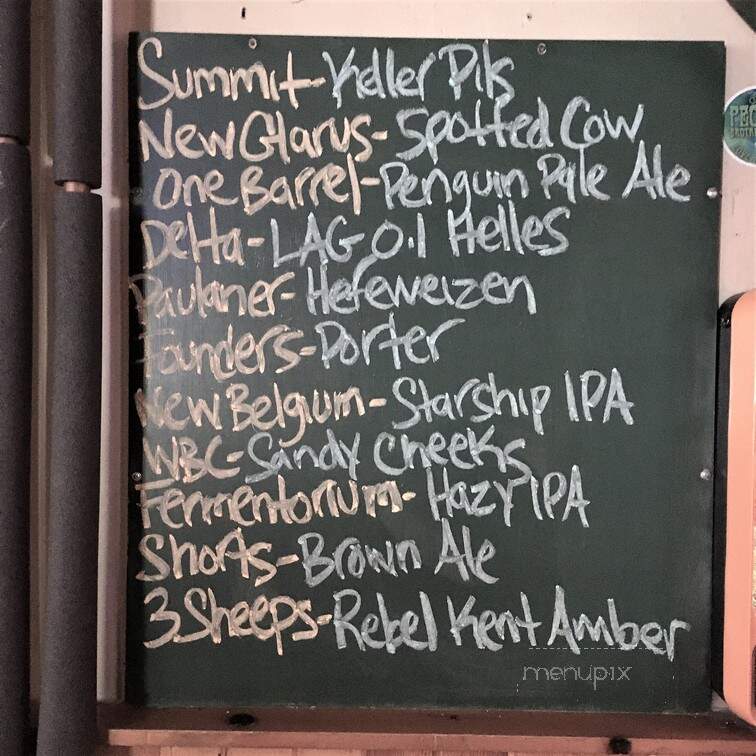 Summit- Keller Pils
New Glarus- Spotted Cow
One Barrel- Penguin Pale Ale
Delta- LAG 0.1 Helles
Paulaner- Hefeweizen
Founders- Porter
New Belgium- Starship IPA
WBC- Sandy Cheeks
Fermentorium- Hazy IPA
Shorts- Brown Ale
3 Sheeps- Rebel Kent Amber
menupix